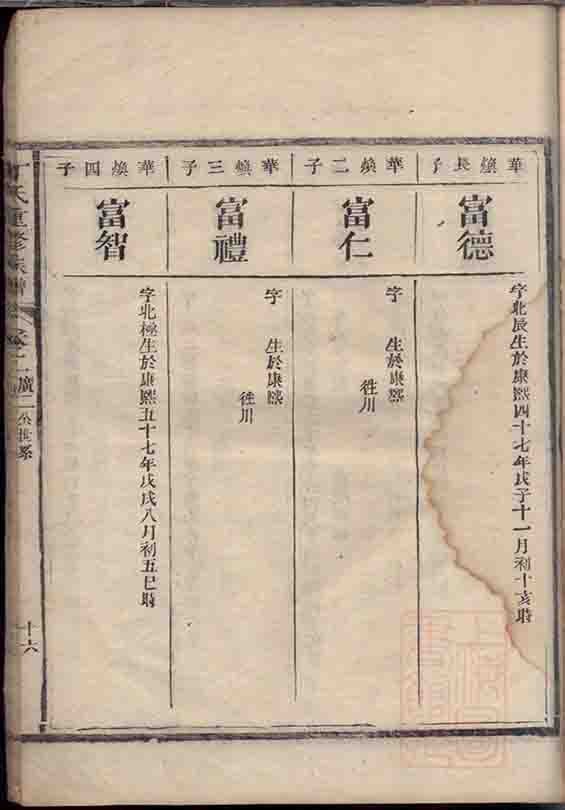 華煥長子
富德
字北辰生於康熙四十七年戊子十一月初十亥時
華煥二子
富仁
字 生於康熙
徃川
華煥三子
富禮
字 生於康熙
徃川
華煥四子
富智
字北極生於康熙五十七年戊戌八月初五巳時
氏重修族譜
廣二公世系
十六